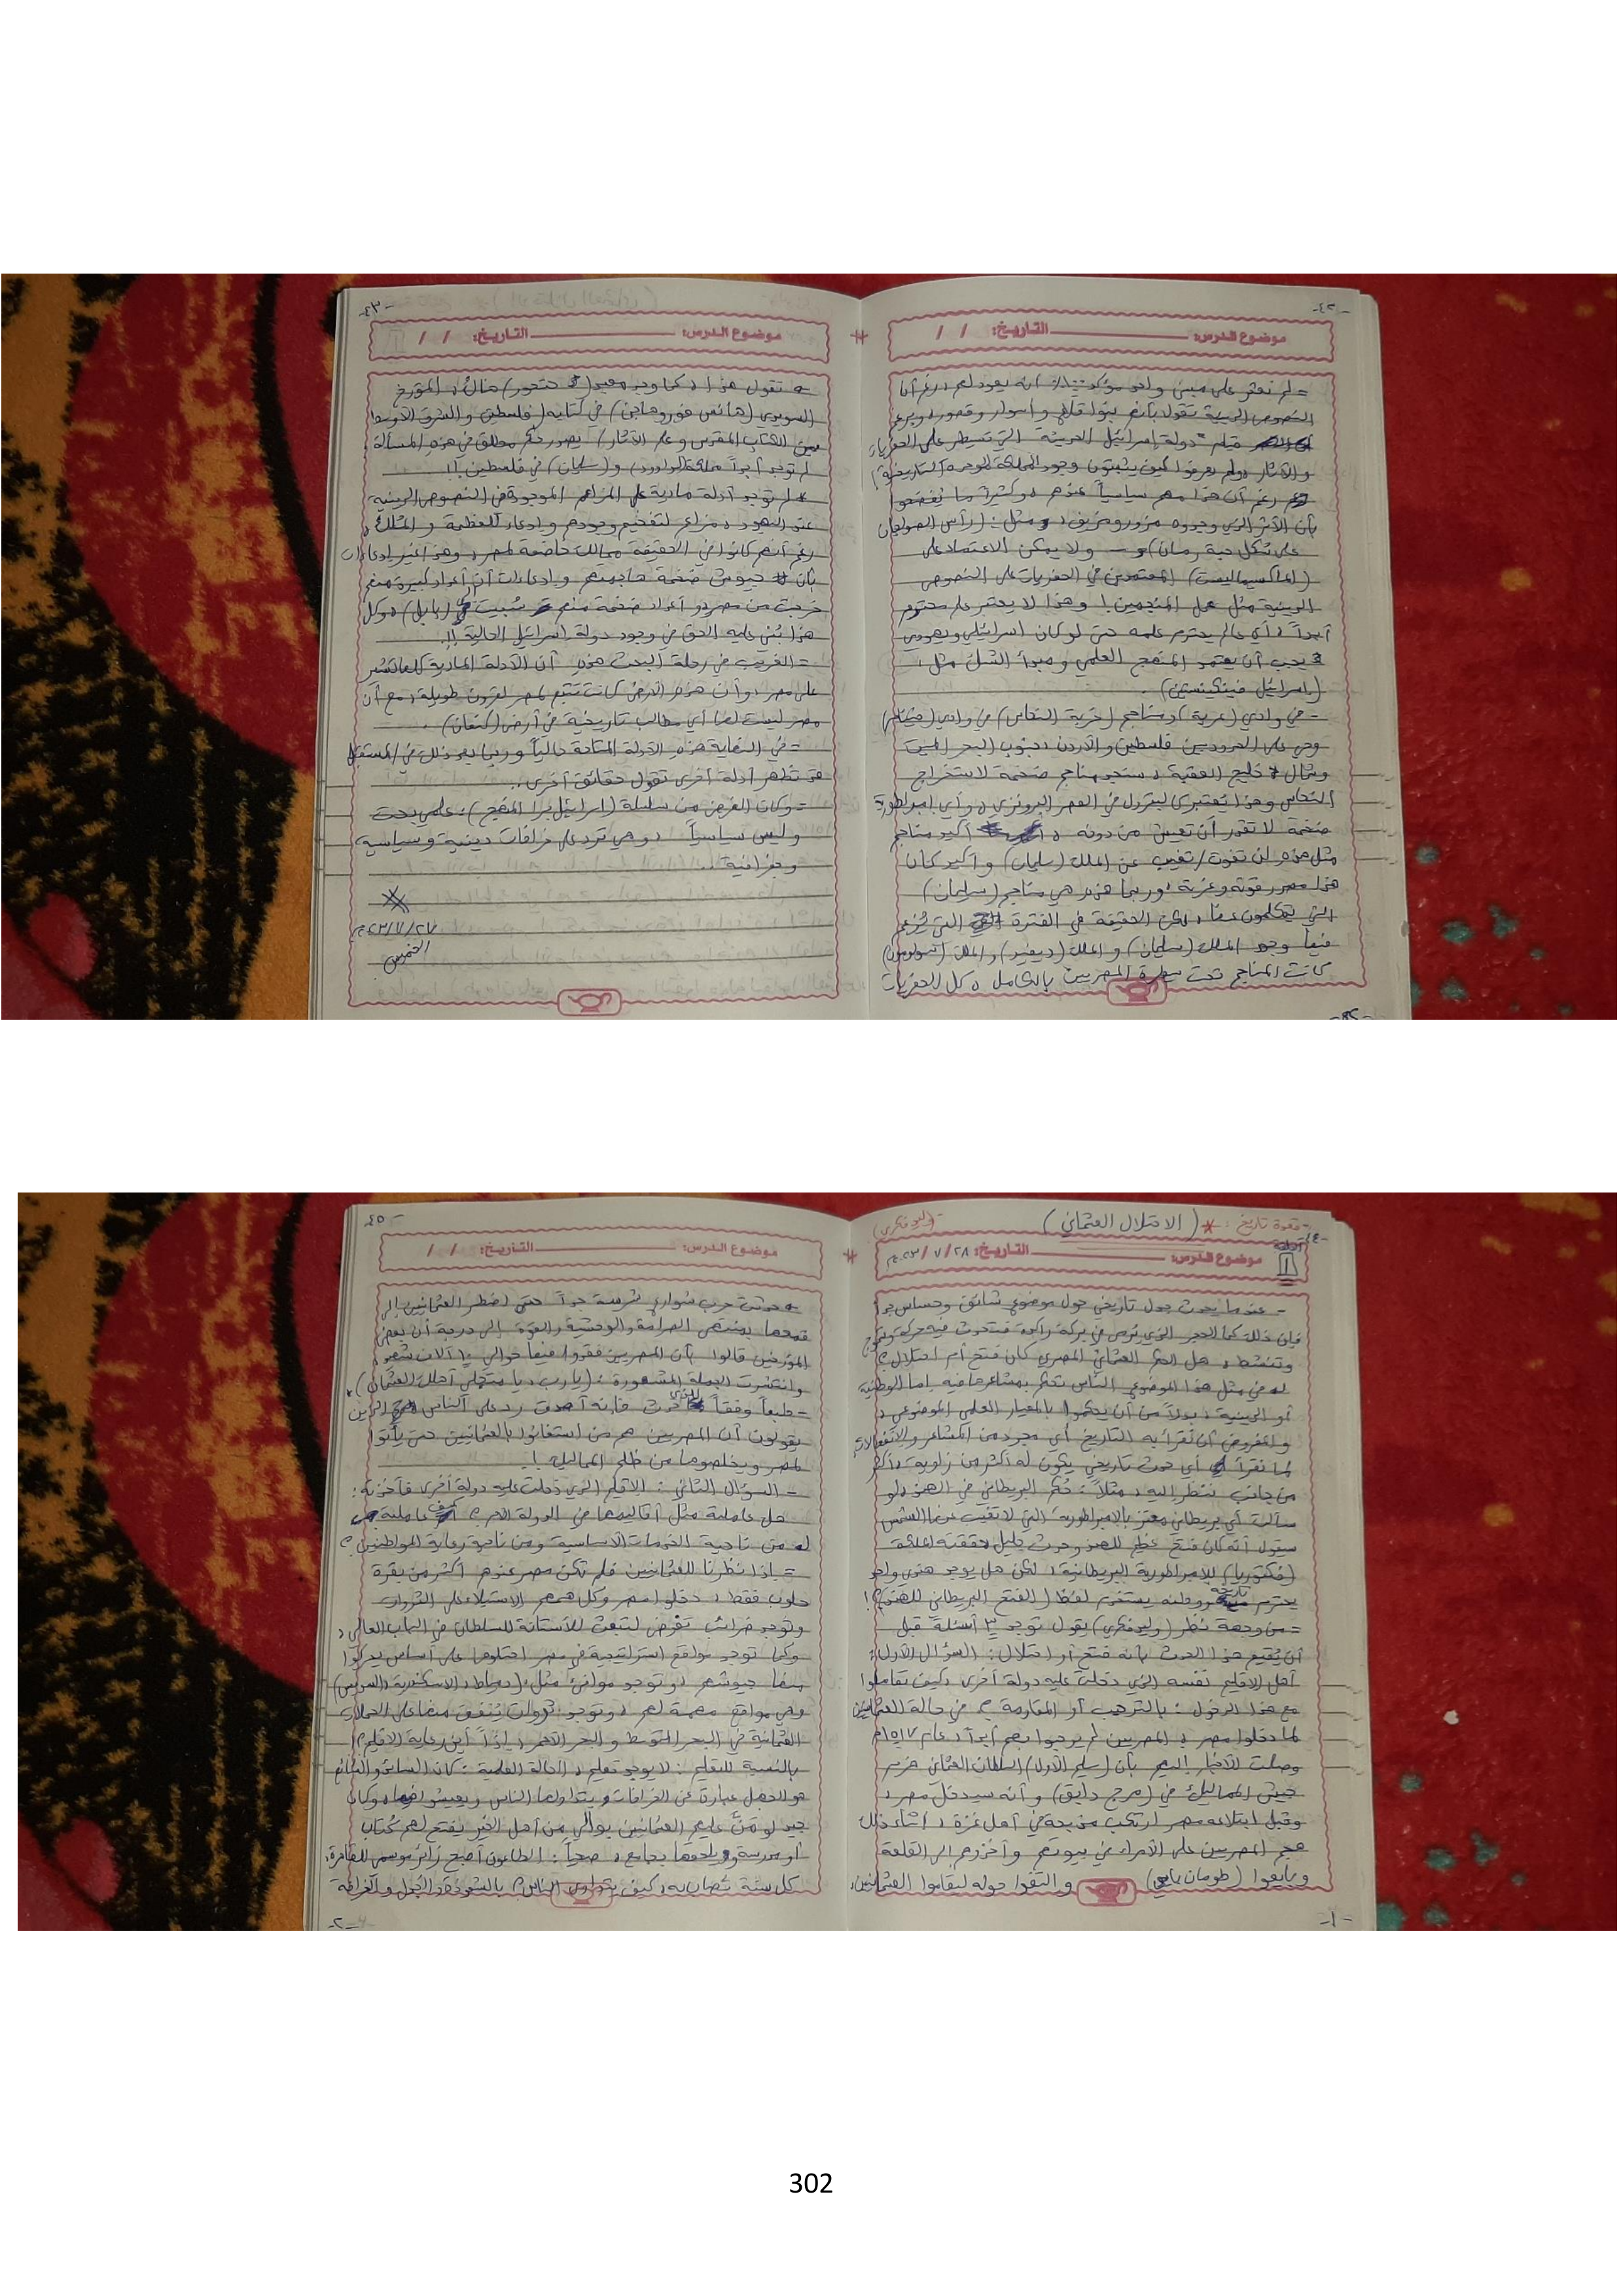 -٤٢-
موضوع الدرس: التاريخ: / /
= لم نعثر على مبنى واحد مؤكد أنه يعود لهم، رغم أن
النصوص الدينية تقول بأنهم بنوا قلاع وأسوار وقصور
قيام "دولة إسرائيل الحديثة" التي تسيطر على الحفريات
والآثار ولم يعرفوا كيف يثبتون وجود المملكة الموحدة التاريخية
رغم أن هذا مهم سياسياً عندهم، وكثيراً ما يُفضحوا
بأن الأثر الذي وجدوه مزور ومزيف، مثل: (رأس الصولجان
على شكل حبة رمان) ولا يمكن الاعتماد على
المعتمدين في الحفريات على النصوص
الدينية مثل عمل المنجمين! وهذا لا يعتبر علم محترم
أبداً، أي عالم يحترم علمه حتى لو كان إسرائيلي ويهودي
يجب أن يعتمد المنهج العلمي ومبدأ الشك مثل:
(إسرائيل فينكلستين).
= في وادي (عربة) مناجم (خربة النحاس) في وادي (فينان)
وهي على الحدود بين فلسطين والأردن جنوب البحر الميت
وشمال خليج العقبة، ستجد مناجم ضخمة لاستخراج
النحاس وهذا يُعتبر كالبترول في العصر البرونزي، وأي إمبراطورية
ضخمة لا تقدر أن تعيش من دونه، أكيد مناجم
مثل هذه لن تفوت/تغيب عن الملك (سليمان) وأكيد كان
هذا مصدر قوته وعزته، وربما هذه هي مناجم (سليمان)
التي يتكلمون عنها، لكن الحقيقة في الفترة التي يُزعم
فيها وجود الملك (سليمان) والملك (ديفيد) والملك (سولومون)
كانت المناجم تحت سيطرة المصريين بالكامل، كل الحفريات
-٤٣-
موضوع الدرس: التاريخ: / /
تقول هذا، كما وجد معبد (حتحور) هناك، المؤرخ
السويدي (هانس فوروهاجن) في كتابه (فلسطين والشرق الأوسط
بين الكتاب المقدس وعلم الآثار) يصور حكم مطلق في هذه المسألة
لم توجد أبداً مملكة لـ(داوود) و(سليمان) في فلسطين!!
لم توجد أدلة مادية على المزاعم الموجودة في النصوص الدينية
عند اليهود، مزاعم لتفخيم وجودهم وإدعاء للعظمة والملك،
رغم أنهم كانوا في الحقيقة ممالك خاضعة لمصر، وهذا غير إدعاءات
بأن جيوش ضخمة هاجمتهم وإدعاءات أن أعداد كبيرة منهم
خرجت من مصر، وأعداد ضخمة منهم سُبيت في (بابل)، وكل
هذا بُني عليه الحق في وجود دولة إسرائيل الحالية!!
= الغريب في رحلة البحث هذه، أن الأدلة المادية كلها تشير
على مصر، وأن هذه الأرض كانت تتبع لمصر لقرون طويلة، مع أن
مصر ليست لها أي مطالب تاريخية في أرض (كنعان).
= في النهاية هذه الأدلة المتاحة حالياً وربما بعد ذلك في المستقبل
قد تظهر أدلة أخرى تقول حقائق أخرى..
= وكان الغرض من سلسلة علمي بحت
وليس سياسياً، وهي ترد على خرافات دينية وسياسية
وجغرافية..
٢٠٢٣/٧/٢٧م
الخميس
-٤٤-
- قهوة تاريخ: * (الاحتلال العثماني) - (وليد فكري)
موضوع الدرس: التاريخ: ٢٨/ ٧/ ٢٠٢٣م
- عندما يحدث جدل تاريخي حول موضوع شائق وحساس جداً
فإن ذلك كما الحجر الذي يُرمى في بركة راكدة فتحدث فيه حركة وتموج
وتنشط، هل الحكم العثماني المصري كان فتح أم احتلال؟
في مثل هذا الموضوع الناس تحكم بمشاعرها فيه إما الوطنية
أو الدينية، بدلاً من أن يحكموا بالمعيار العلمي الموضوعي،
والمفروض أن نقرأ به التاريخ أي مجرد من المشاعر والانفعالات
لما نقرأ أي حدث تاريخي يكون له أكثر من زاوية، وأكثر
من جانب ننظر إليه، مثلاً: حُكم البريطاني في الهند، لو
سألت أي بريطاني معتز بالإمبراطورية التي لا تغيب عنها الشمس
سيقول أنه كان فتح عظيم للهند وحدث جليل حققته الملكة
(فكتوريا) للإمبراطورية البريطانية، لكن هل يوجد هندي واحد
يحترم تاريخه ووطنه يستخدم لفظ (الفتح البريطاني للهند)؟!
= من وجهة نظر (وليد فكري) يقول توجد ٣ أسئلة قبل
أن يُقيم هذا الحدث بأنه فتح أو احتلال: السؤال الأول:
أهل الإقليم نفسه الذي دخلت عليه دولة أخرى، كيف تعاملوا
مع هذا الدخول: بالترحيب أو المقاومة؟ في حالة العثمانيين
لما دخلوا مصر، المصريين لم يرحبوا بهم أبداً، عام ١٥١٧م
وصلت الأخبار إليهم بأن (سليم الأول) السلطان العثماني هزم
جيش المماليك في (مرج دابق) وأنه سيدخل مصر،
وقبل ابتلاعه مصر ارتكب مذبحة في أهل غزة، أثناء ذلك
هجم المصريين على الأمراء في بيوتهم وأخذوهم إلى القلعة
وبايعوا (طومان باي) والتفوا حوله ليقاوموا العثمانيين،
-١-
-٤٥-
موضوع الدرس: التاريخ: / /
حدثت حرب شوارع شرسة جداً حتى اضطر العثمانيين إلى
قمعها بمنتهى الصرامة والوحشية والقوة إلى درجة أن بعض
المؤرخين قالوا بأن المصريين فقدوا فيها حوالي ١٠ آلاف شهيد
وانتشرت الجملة المشهورة: (يا رب يا متجلي أهلك العثمانلي)،
= طبعاً وفقاً للذي حدث فإنه أصدق رد على الناس الذين
يقولون أن المصريين هم من استغاثوا بالعثمانيين حتى يأتوا
لمصر ويخلصوها من ظلم المماليك!!
= السؤال الثاني: الإقليم الذي دخلت عليه دولة أخرى فأخذته:
هل عاملته مثل أقاليمها في الدولة الأم؟ كيف عاملته
من ناحية الخدمات الأساسية ومن ناحية رعاية المواطنين؟
= إذا نظرنا للعثمانيين فلم تكن مصر عندهم أكثر من بقرة
حلوب فقط، دخلوا مصر وكل همهم الاستيلاء على الثروات
وتوجد ضرائب تُفرض لتُبعث للآستانة للسلطان في الباب العالي،
وكما توجد مواقع استراتيجية في مصر احتلوها على أساس يحركوا
منها جيوشهم، وتوجد موانئ مثل: (دمياط، الإسكندرية، السويس)
وهي مواقع مهمة لهم، وتوجد: ثروات يُنفق منها على الحملات
العثمانية في البحر المتوسط والبحر الأحمر، إذاً أين رعاية الإقليم؟!
بالنسبة للتعليم: لا يوجد تعليم، الحالة العلمية: كان السائد والشائع
هو الجهل عبارة عن خرافات يتداولها الناس ويعيشون فيها، وكان
جيد لو مَنّ عليهم العثمانيين بوالي من أهل الخير يفتح لهم كُتاب
أو مدرسة ويلحقها بجامع، صحياً: الطاعون أصبح زائر موسمي للقاهرة،
كل سنة تُصاب به، كيف يتداوى الناس؟ بالشعوذة والجهل والخرافة
-٢-
302